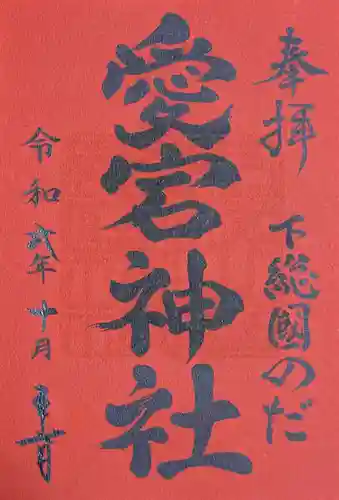 奉拝
下総國のだ
愛宕神社
令和六年十月